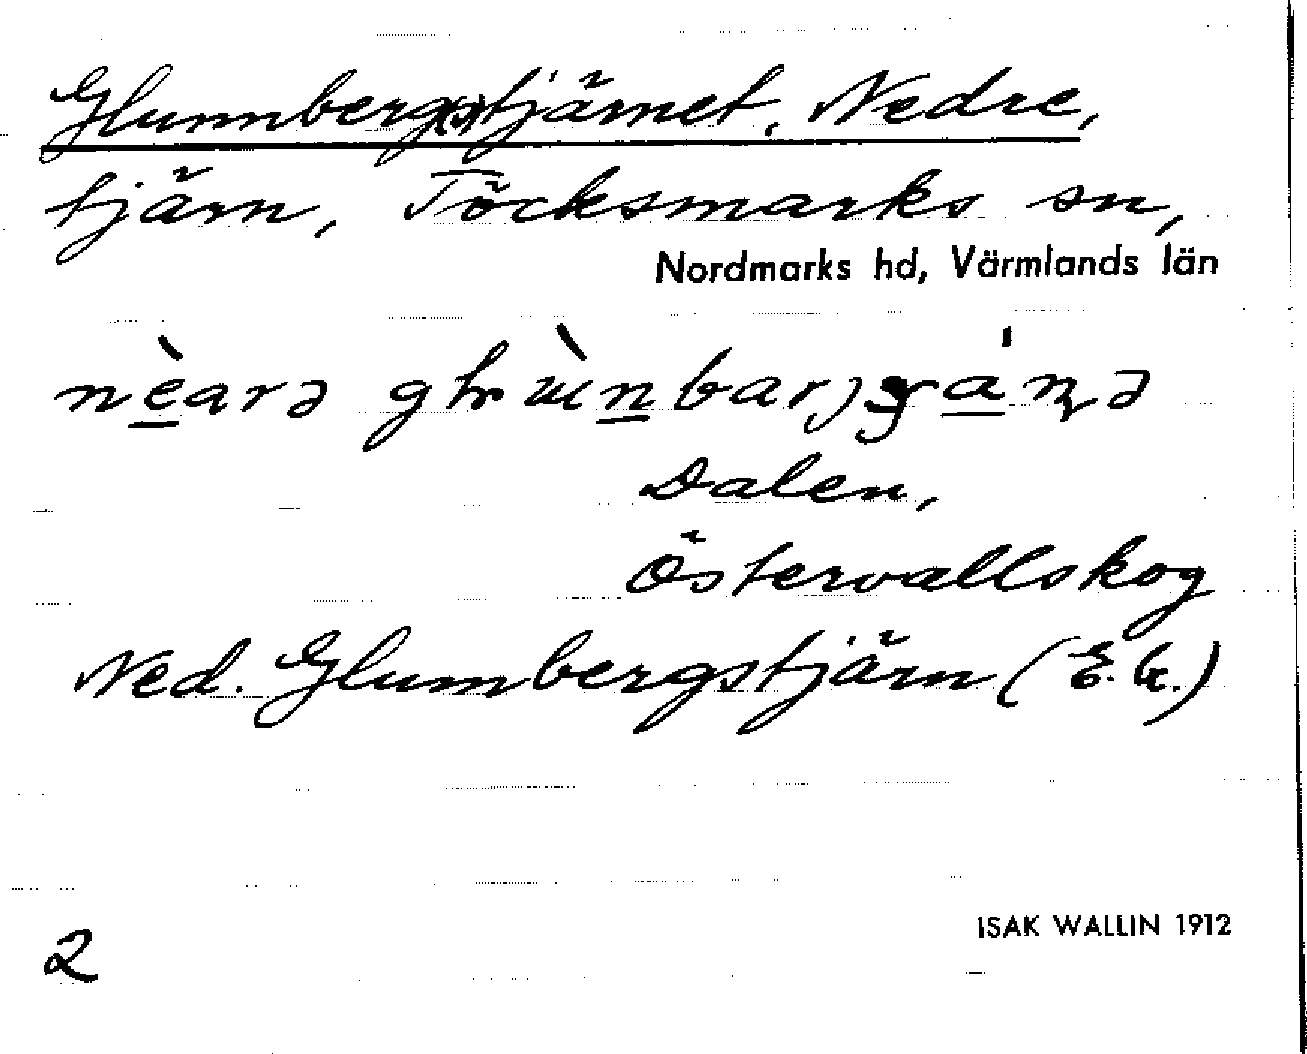 Glumberg(s)tjärnet, Nedre,
tjärn, Töcksmarks sn,
Nordmarks hd, Värmlands län
Dalen,
Östervallskog
Ned. Glumbergstjärn (E.k.)
2
ISAK WALLIN 1912